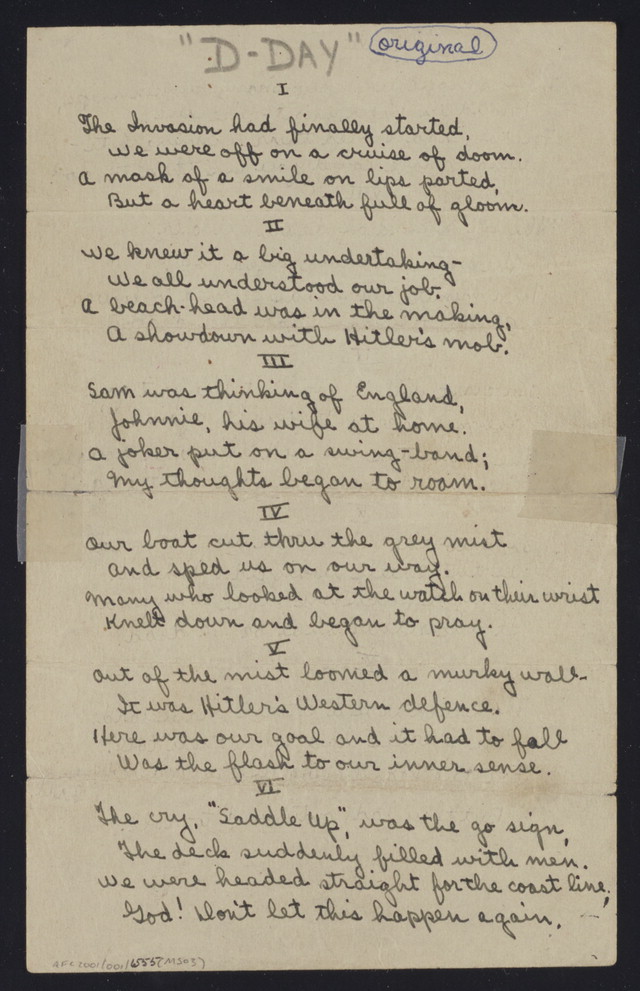 "D-DAY" original
I
The Invasion had finally started,
we were off on a cruise of doom.
A mask of a smile on lips parted,
But a heart beneath full of gloom.
II
We knew it a big undertaking-
We all understood our job.
A beach-head was in the making,
A showdown with Hitler's mob.
III
Sam was thinking of England,
Johnnie, his wife at home.
A joker put on a swing-band;
My thoughts began to roam.
IV
Our boat cut thru the grey mist
and sped us on our way.
Many who looked at the watch on their wrist
Knelt down and began to pray.
V
Out of the mist loomed a murky wall-
It was Hitler's Western defence.
Here was our goal and it had to fall
Was the flash to our inner sense.
VI
The cry, "Saddle Up", was the go sign,
The deck suddenly filled with men.
We were headed straight for the coast line;
God! Don't let this happen again. -
AFC2001/001/6555(MS03)